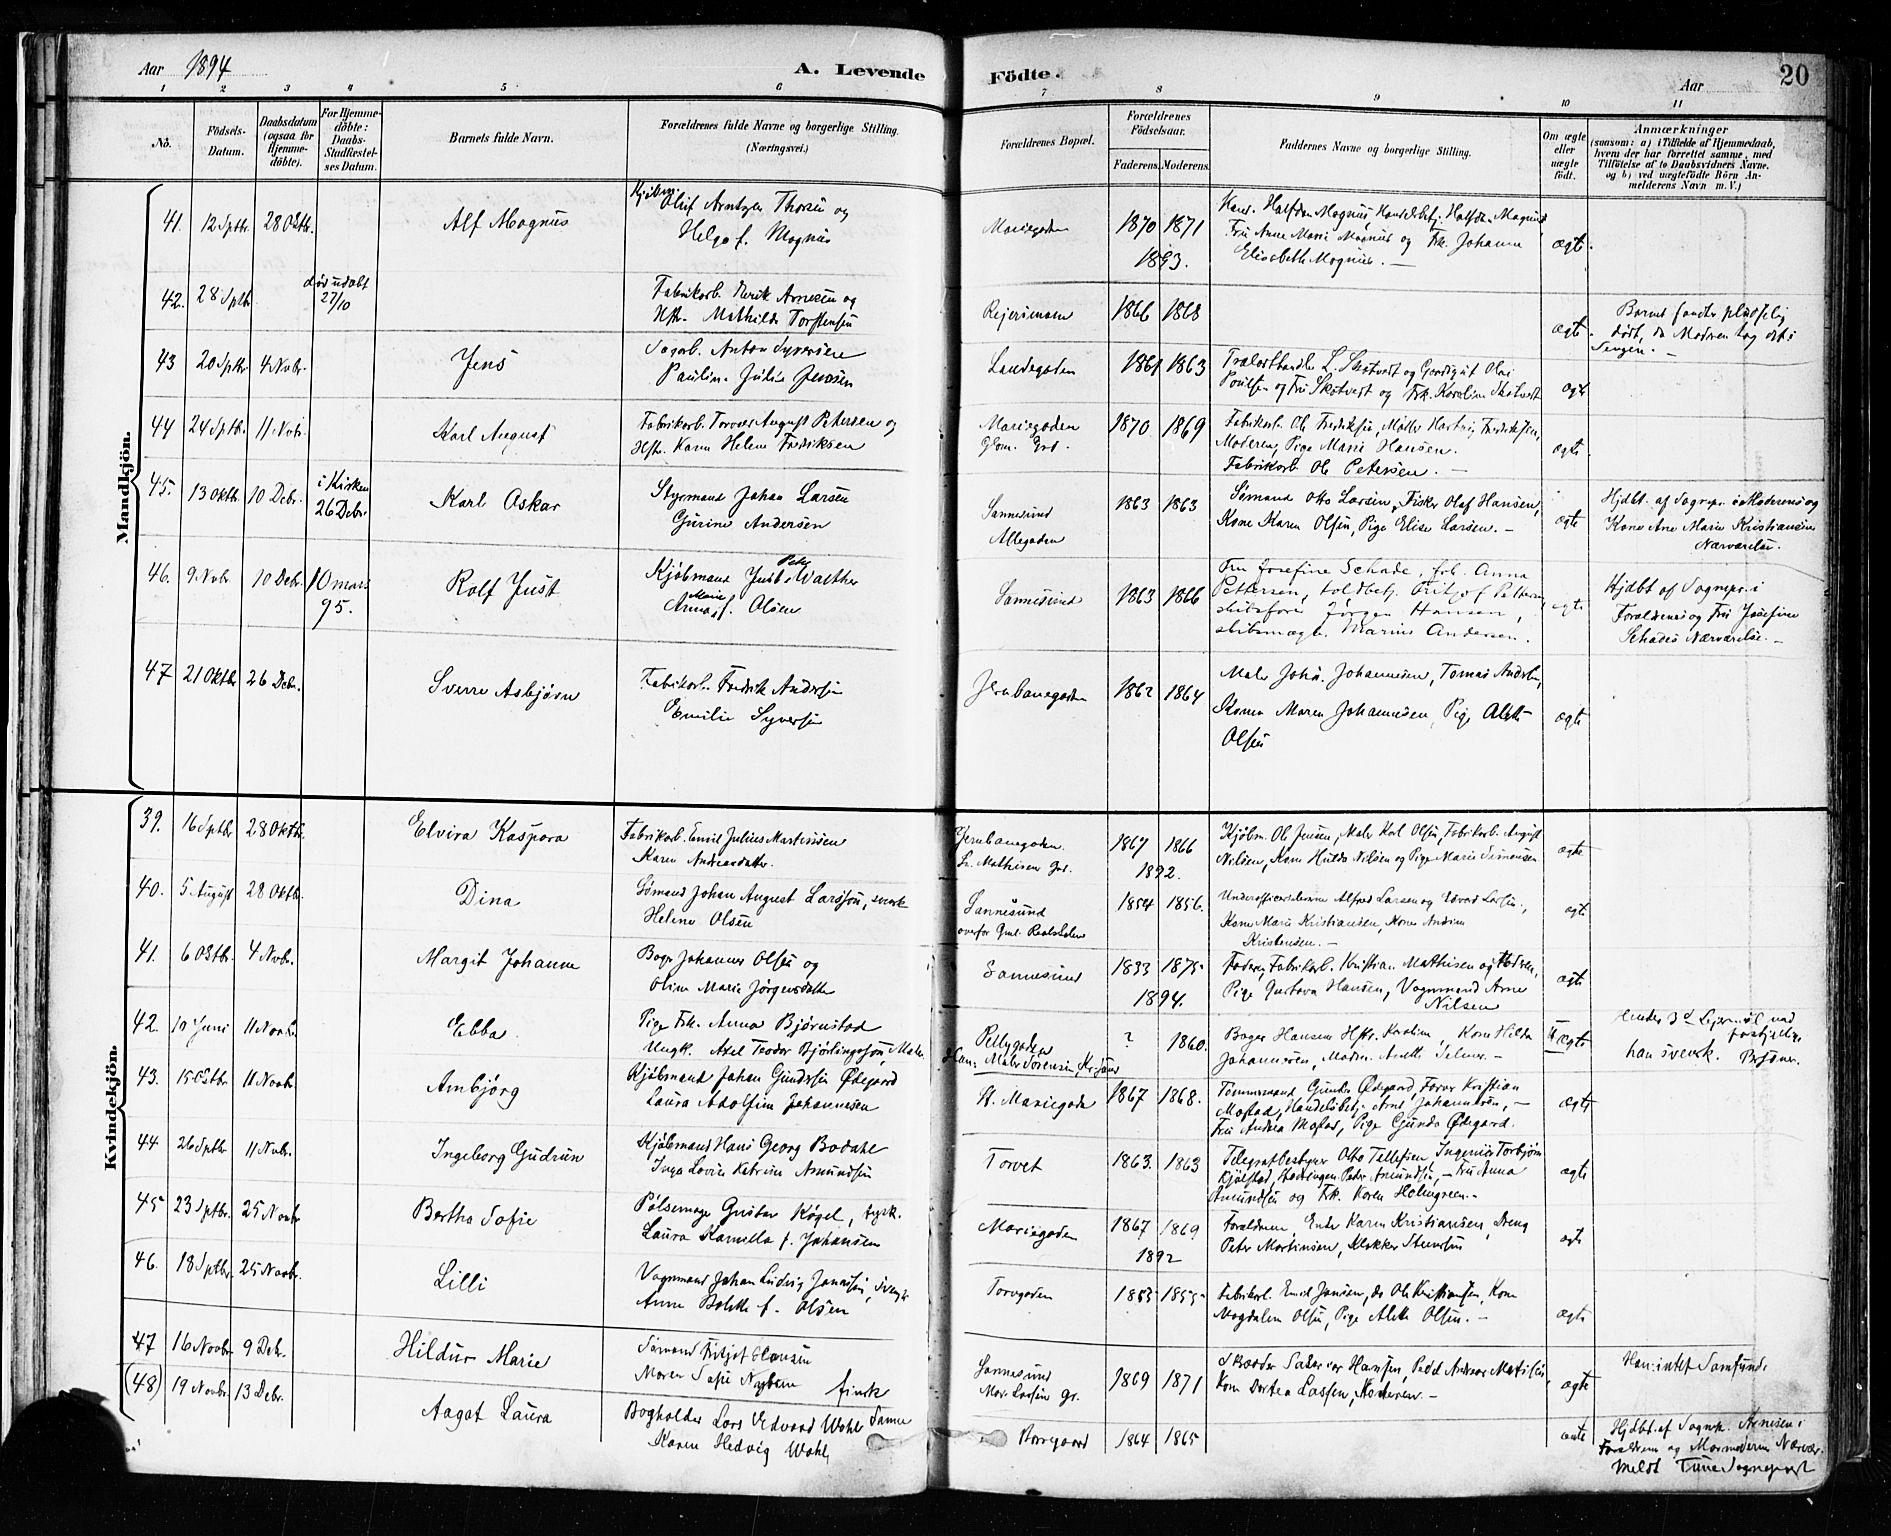 Aar 1894
A. Levende
Födte.
Aar
20
1 2 3 4 5 6 7 8 9 10 11
No.
Födsels-
Datum.
Daabsdatum
(ogsaa för
Hjemme-
döbte).
For Hjemme-
döbte:
Daabs-
Stadfæstel-
ses Datum.
Barnets fulde Navn.
Forældrenes fulde Navne og borgerlige Stilling.
(Næringsvei.)
Forældrenes Bopæl.
Forældrenes
Födselsaar.
Faderens. Moderens.
Faddernes Navne og borgerlige Stilling.
Om ægte
eller
uægte
födt.
Anmærkninger
(saasom: a) i Tilfælde af Hjemmedaab,
hvem der har forrettet samme, med
Tilföielse af to Daabsvidners Navne.
og b) ved uægtefödte Börn An-
melderens Navn m. V.)
Mandkjön.
41. 12 Sptbr. 28 Oktbr. Alf Magnus
Kjøbm. Oluf Arntzen Thorsen og
Helga f. Magnus
Mariegaden 1870 1871
1893.
Halfdan Magnus, Handelsbetj. Halfdan Magnus
Fru Anne Marie Magnus og Frk. Johanne
Elisabeth Magnus. —
ægte
42. 28 Sptbr. død udøbt
27/10
Fabrikarb. Henrik Arnesen og
Hstr. Mathilde Torstensen
1866 1868
ægte
Barnet fandtes pludselig
dødt, da Moderen tog det i
Sengen. —
43 20 Sptbr 4 Novbr. Jens
Sagarb. Anton Syversen
Pauline Julie Jensen
Landegaden 1861 1863
Trælasthandler L. Skotvedt og Gaardsgut Olai
Poulsen og Fru Skotvedt og Frk. Karoline Skotvedt
ægte
44 24 Sptbr. 11 Nvbr. Karl August
Fabrikarb. Torvar August Petersen og
Hstr. Karen Helene Fredriksen
Mariegaden
1870 1869
Fabrikarb. Ole Fredriksen, Møller Hartvig Fredriksen,
Moderen, Pige Marie Hansen.
Fabrikarb. Ole Petersen. —
ægte
45. 13 Oktbr 10 Debr. i Kirken
26 Debr. Karl Oskar
Styrmand Johan Larsen
Gurine Andersen
Sannesund
Allegaden
1863 1863
Sømand Otto Larsen, Fisker Olaf Hansen,
Kone Karen Olsen, Pige Elise Larsen. —
ægte
Hjdbt. af Sogнepr. i Moderens og
Kone Ane Marie Kristiansens
Nærværelse.
46. 9 Novbr 10 Debr. 10 mars
95. Rolf Just
Kjøbmand Just Peter Walther
Anna Marie f. Olsen
Sannesund 1863 1866
Fru Josefine Schade, frk. Anna
Pettersen, toldbetj. Fritjof Pettersen,
skibsfører Jørgen Hansen,
skibsmægl. Marius Andersen.
ægte
Hjdbt af Sognepr. i
Forældrenes og Fru Josefine
Schades Nærværelse. —
47 21 Oktbr 26 Debr. Sverre Asbjørn
Fabrikarb. Fredrik Andersen
Emilie Syversen
Jernbanegaden 1862 1864
Maler Johs. Johannesen, Tomas Andersen,
Konen Maren Johannesen, Pige Alette
Olsen
ægte
Kvindekjön.
39. 16 Sptbr 28 Oktbr. Elvira Kaspara
Fabrikarb. Emil Julius Martinsen
Karen Andreasdatter.
Jernbanegaden.
Sv. Mathisens Grd.
1867 1866
1892.
Kjøbm. Ole Jensen, Maler Karl Olsen, Fabrikarb. August
Nilsen, Kone Hulda Nilsen og Pige Marie Simonsen
ægte
40. 5 August 28 Oktbr. Dina
Sømand Johan August Larsson, svensk
Helene Olsen
Sannesund
1854 1856.
Underofficerselevene Alfred Larsen og Edvard Larsen,
Kone Marie Kristiansen, Kone Andrine
Kristensen. —
ægte
41. 6 Oktbr. 4 Nvbr. Margit Johanne
Bager Johannes Olsen og
Oline Marie Jørgensdatter
Sannesund 1833 1875
1894.
Faderen, Fabrikarb. Kristian Mathisen og Moderen,
Pige Gustava Hansen, Vognmand Arne
Nilsen
ægte
42. Juni 11 Novbr. Ebba.
Pige Frk. Anna Bjørnstad
Ungk. Axel Teodor Bjørlingsson, Maler
Pellygaden
Maler Sørensen
? 1860.
Bager Hansen Hstr. Karoline, Kone Hilda
Johannesen, Madm. Anette Selmer. —
Uægte
Hendes 3d Lejermaal med
forskjellige
Personer.
han svensk.
43. 15 Oktbr. 11 Novbr. Ambjørg
Kjøbmand Johan Gundersen Ødegaard
Laura Adolfine Johannesen
St. Mariegade 1867 1868.
Tømmermand Gunder Ødegaard, Farver Kristian
Mostad, Handelsbetj. Arne Johannesen, —
Fru Andrea Mostad, Pige Gunda Ødegaard.
ægte
44 26 Sptbr 11 Nvbr. Ingeborg Gudrun
Kjøbmand Hans Georg Bodahl
Inga Lovise Katrine Amundsen
Torvet 1863. 1863
Telegrafbestyrer Otto Tellefsen, Ingeniør Torbjørn
Kjølstad, Peder Amundsen, — Fru Anna
Amundsen og Frk. Karen Holmgreen. —
ægte
45 23 Sptbr. 25 Novbr Bertha Sofie
Pølsemager Gustav Kögel, tysk.
Laura Kamilla f. Johansen
Mariegaden 1867 1869
1892
Forældrene, Enke Karen Kristiansen, Dreng
Peter Martinsen, Klokker Steensen
ægte
46. 18 Sptbr. 25 Novbr. Lilli
Vognmand Johan Ludvig Jonassen, svensk
Anne Bolette f. Olsen
Torvgaden 1853 1855
Fabrikarb. Emil Jansen, do Ole Kristiansen, Kone
Magdalene Olsen, Pige Alette Olsen. —
ægte
47 16 Novbr. 9 Debr. Hildur Marie
Sømand Fritjof Hansen
Maren Sofie finsk
Sannesund
Mar. Larsens Gr.
1869 1871
Skrædder Hansen, Peder Andreas Mathisen
Kone Dortea Lassen, Moderen. —
ægte
Han: intet Samfund.
(48) 19 Novbr. 13 Debr. Aagot Laura
Bogholder Lars Edvard Wahl
Karen Hedvig Wahl
Borregaard 1864 1865
ægte
Hjdbt. af Sognepr. Arnesen i
Forældrenes og Mormoderens Nærvær.
Meldt Tune Sognepræst